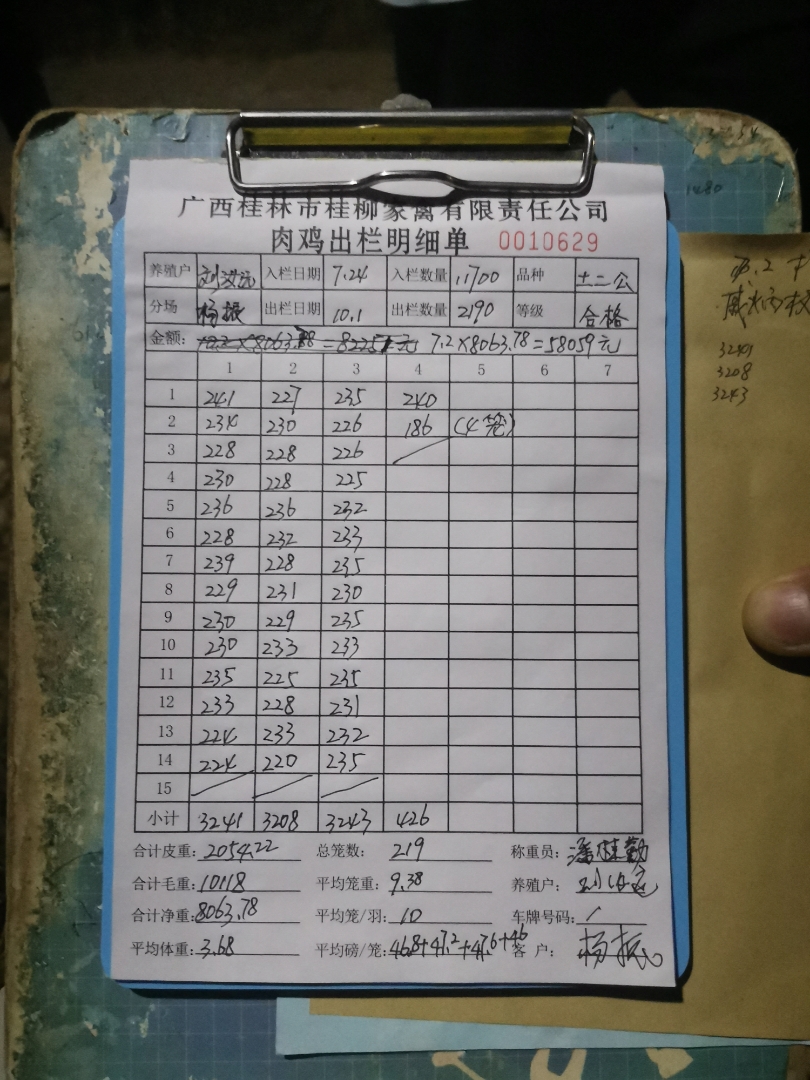 广西桂林市桂柳家禽有限责任公司
肉鸡出栏明细单 0010629
养殖户 入栏日期 7.24 入栏数量 11700 品种 土二公
分场 杨振 出栏日期 10.1 出栏数量 2190 等级 合格
金额: 10.2×8063.78=82251元 7.2×8063.78=58059元
1 2 3 4 5 6 7
1 241 227 235 240
2 234 230 226 186 (4笼)
3 228 228 226
4 230 228 225
5 236 236 232
6 228 232 233
7 239 228 235
8 229 231 230
9 230 229 235
10 230 233 233
11 235 225 235
12 233 228 231
13 224 233 232
14 224 220 235
15
小计 3241 3208 3243 426
合计皮重: 2054.22 总笼数: 219 称重员: 潘桂勤
合计毛重: 10118 平均笼重: 9.38 养殖户:
合计净重: 8063.78 平均笼/羽: 10 车牌号码: /
平均体重: 3.68 平均磅/笼: 46.8+47.2+47.6+46 客户: 杨振
3241
3208
3243